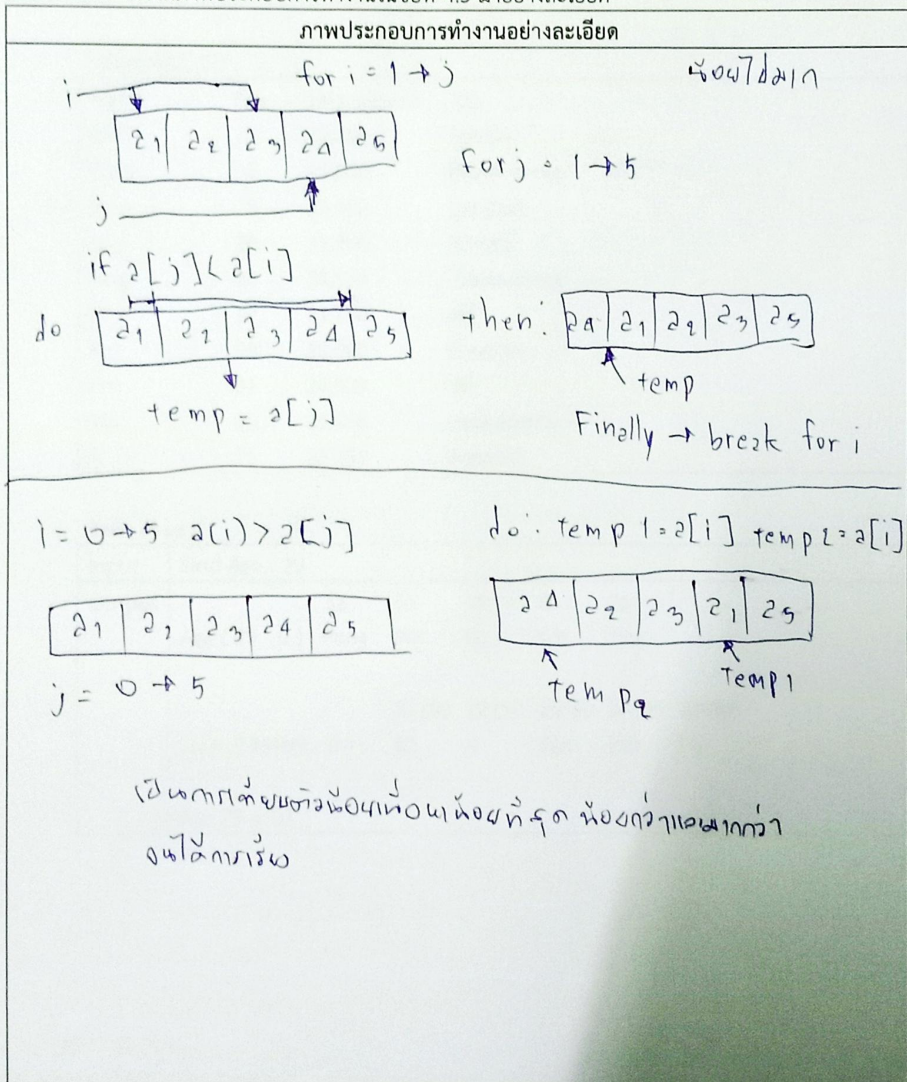 ภาพประกอบการทำงานอย่างละเอียด
for i = 1 → j
น้อยไปมาก
i
a1 a2 a3 a4 a5
for j = 1 → 5
j
if a[j] < a[i]
do a1 a2 a3 a4 a5
then: a4 a1 a2 a3 a5
temp = a[j]
temp
Finally → break for i
i = 0 → 5 a(i) > a[j]
do: temp 1 = a[i] temp 2 = a[i]
a1 a2 a3 a4 a5
a4 a2 a3 a1 a5
j = 0 → 5
temp2
Temp1
เป็นการเทียบตัวน้อยเพื่อหาน้อยที่สุด น้อยกว่าและมากกว่า
จนได้การเรียง